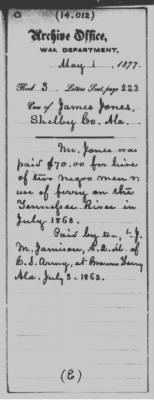 (14.012)
Archive Office,
WAR DEPARTMENT,
May 1, 1877.
Book 3 Letters Sent, page 223
Case of James Jones,
Shelby Co. Ala.
Mr. Jones was
paid $70.00 for hire
of two negro men &
use of ferry on the
Tennessee River in
July 1863.
Paid by J.
M. Jamison, A.Q.M. of
C.S. Army, at Browns Ferry
Ala. July 3. 1863.
(E)